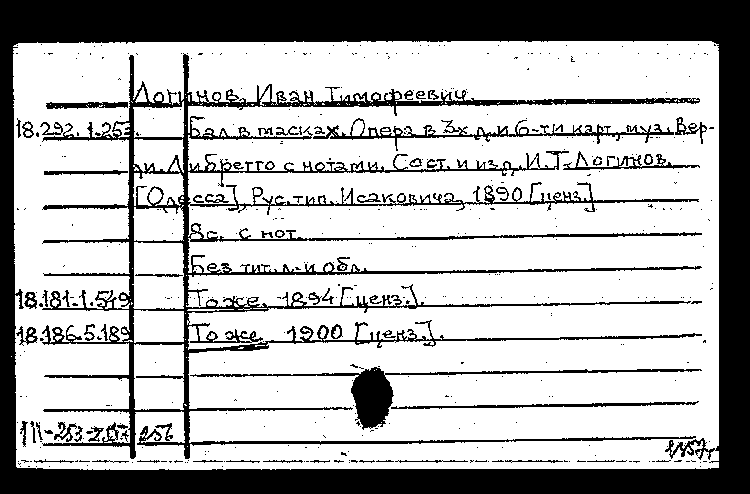 Логинов, Иван Тимофеевич.
18.292.1.253. Бал в масках. Опера в 3х д. и 6-ти карт., муз. Вер-
ди. Либретто с нотами. Сост. и изд. И.Т. Логинов.
[Одесса], Рус. тип. Исаковича, 1890 [ценз.]
8с. с нот.
Без тит. л. и обл.
18.181.1.549 То же. 1894 [ценз.].
18.186.5.189 То же. 1900 [ценз.].
256